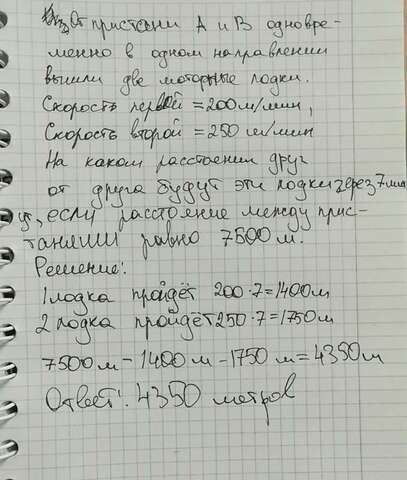 От пристани А и В одновре-
менно в одном направлении
вышли две моторные лодки.
Скорость первой = 200 м/мин,
Скорость второй = 250 м/мин
На каком расстоении друг
от друга будут эти лодки через 7 мин
, если расстояние между прис-
танями равно 7500 м.
Решение:
1 лодка пройдёт 200·7=1400м
2 лодка пройдёт 250·7=1750м
7500м - 1400м - 1750м = 4350м
Ответ: 4350 метров